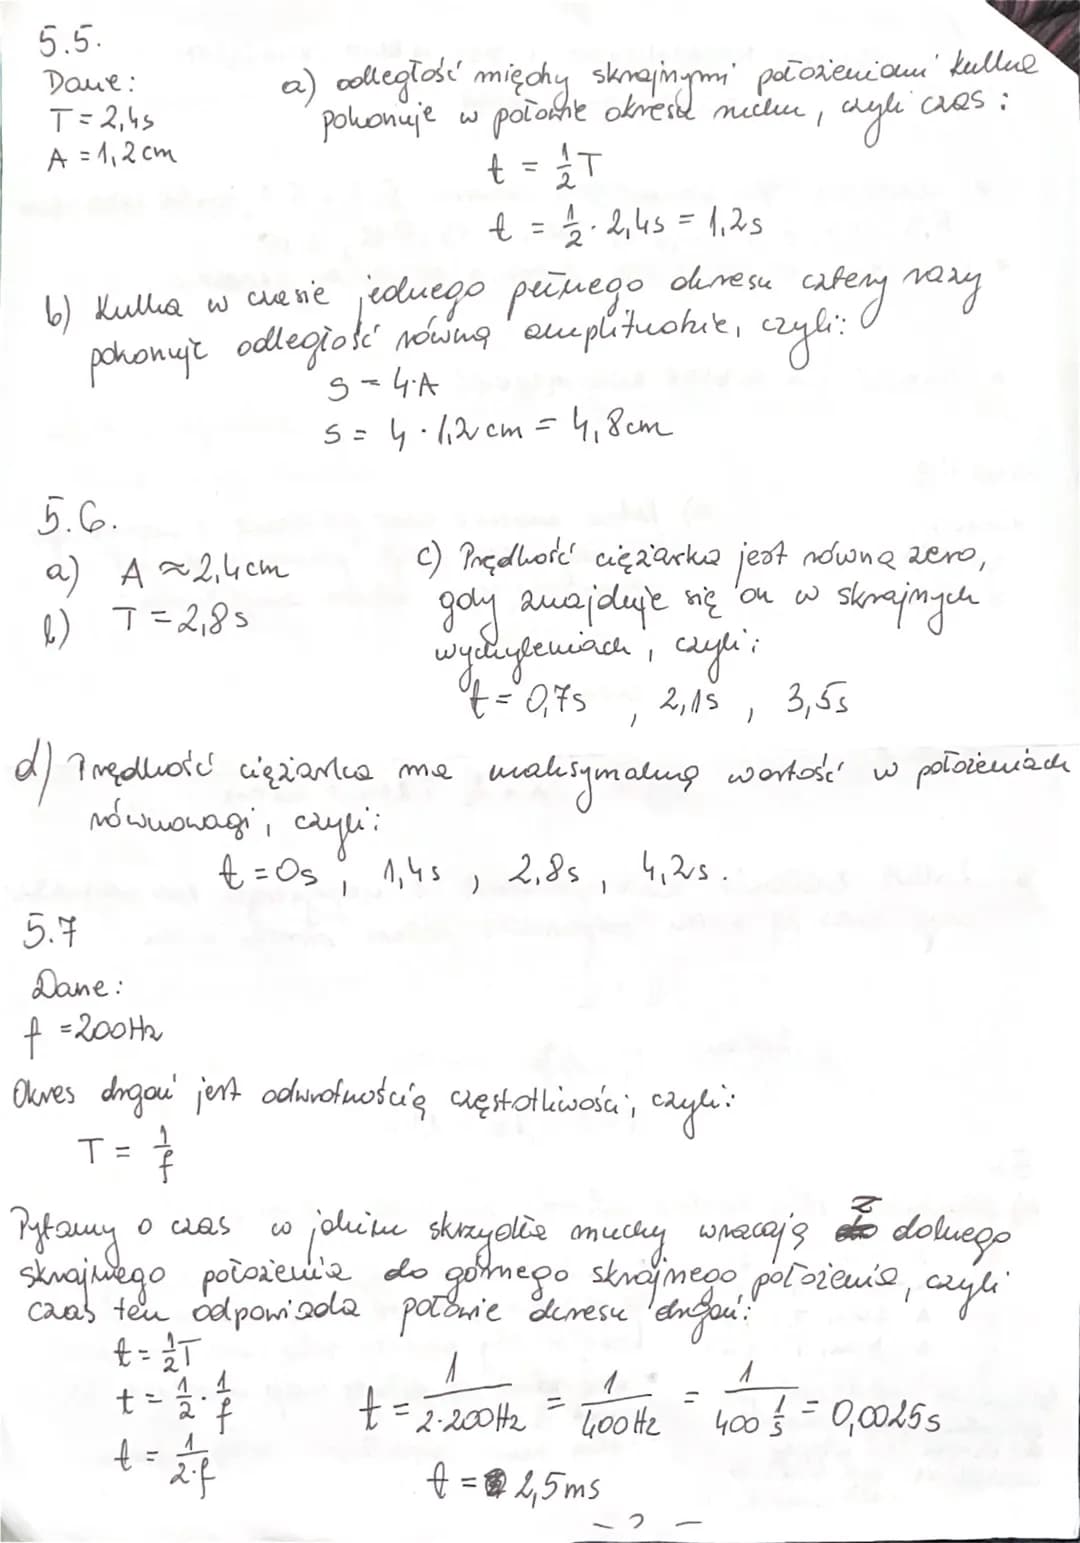 5.5.
Dane:
T = 2,4s
A = 1,2 cm
a) odległość między skrajnymi położeniami kulka
pokonuje w połowie okresu ruchu, czyli czas:
t = 1/2 T
t = 1/2 · 2,4s = 1,2s
b) Kulka w czasie jednego pełnego okresu cztery razy
pokonuje odległość równą amplitudzie, czyli:
s = 4·A
s = 4 · 1,2 cm = 4,8 cm
5.6.
a) A ≈ 2,4 cm
b) T = 2,8 s
c) Prędkość ciężarka jest równa zero,
gdy znajduje się on w skrajnych
wychyleniach, czyli:
t = 0,7s , 2,1s , 3,5s
d) Prędkość ciężarka ma maksymalną wartość w położeniach
równowagi, czyli:
t = 0s , 1,4s , 2,8s , 4,2s.
5.7
Dane:
f = 200Hz
Okres drgań jest odwrotnością częstotliwości, czyli:
T = 1/f
Pytamy o czas w jakim skrzydła muchy wracają z dolnego
skrajnego położenia do górnego skrajnego położenia, czyli
czas ten odpowiada połowie okresu drgań:
t = 1/2 T
t = 1/2 · 1/f
t = 1/2·f
t = 1/2·200Hz = 1/400Hz = 1/400 1/s = 0,0025s
t = 2,5ms
- 2 -